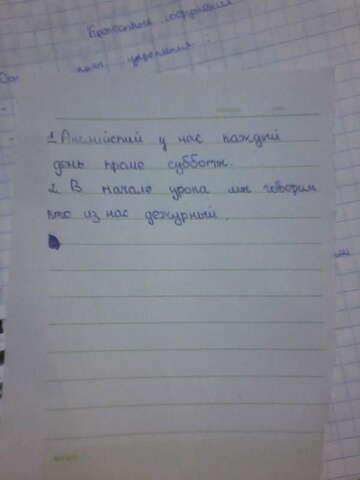 сокращения
1 Английский у нас каждый
день кроме субботы.
2. В начале урока мы говорим
кто из нас дежурный.